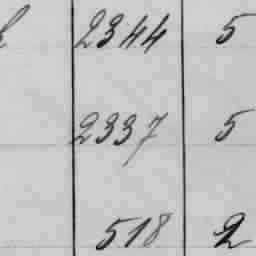 2344 5
2337 5
518 2